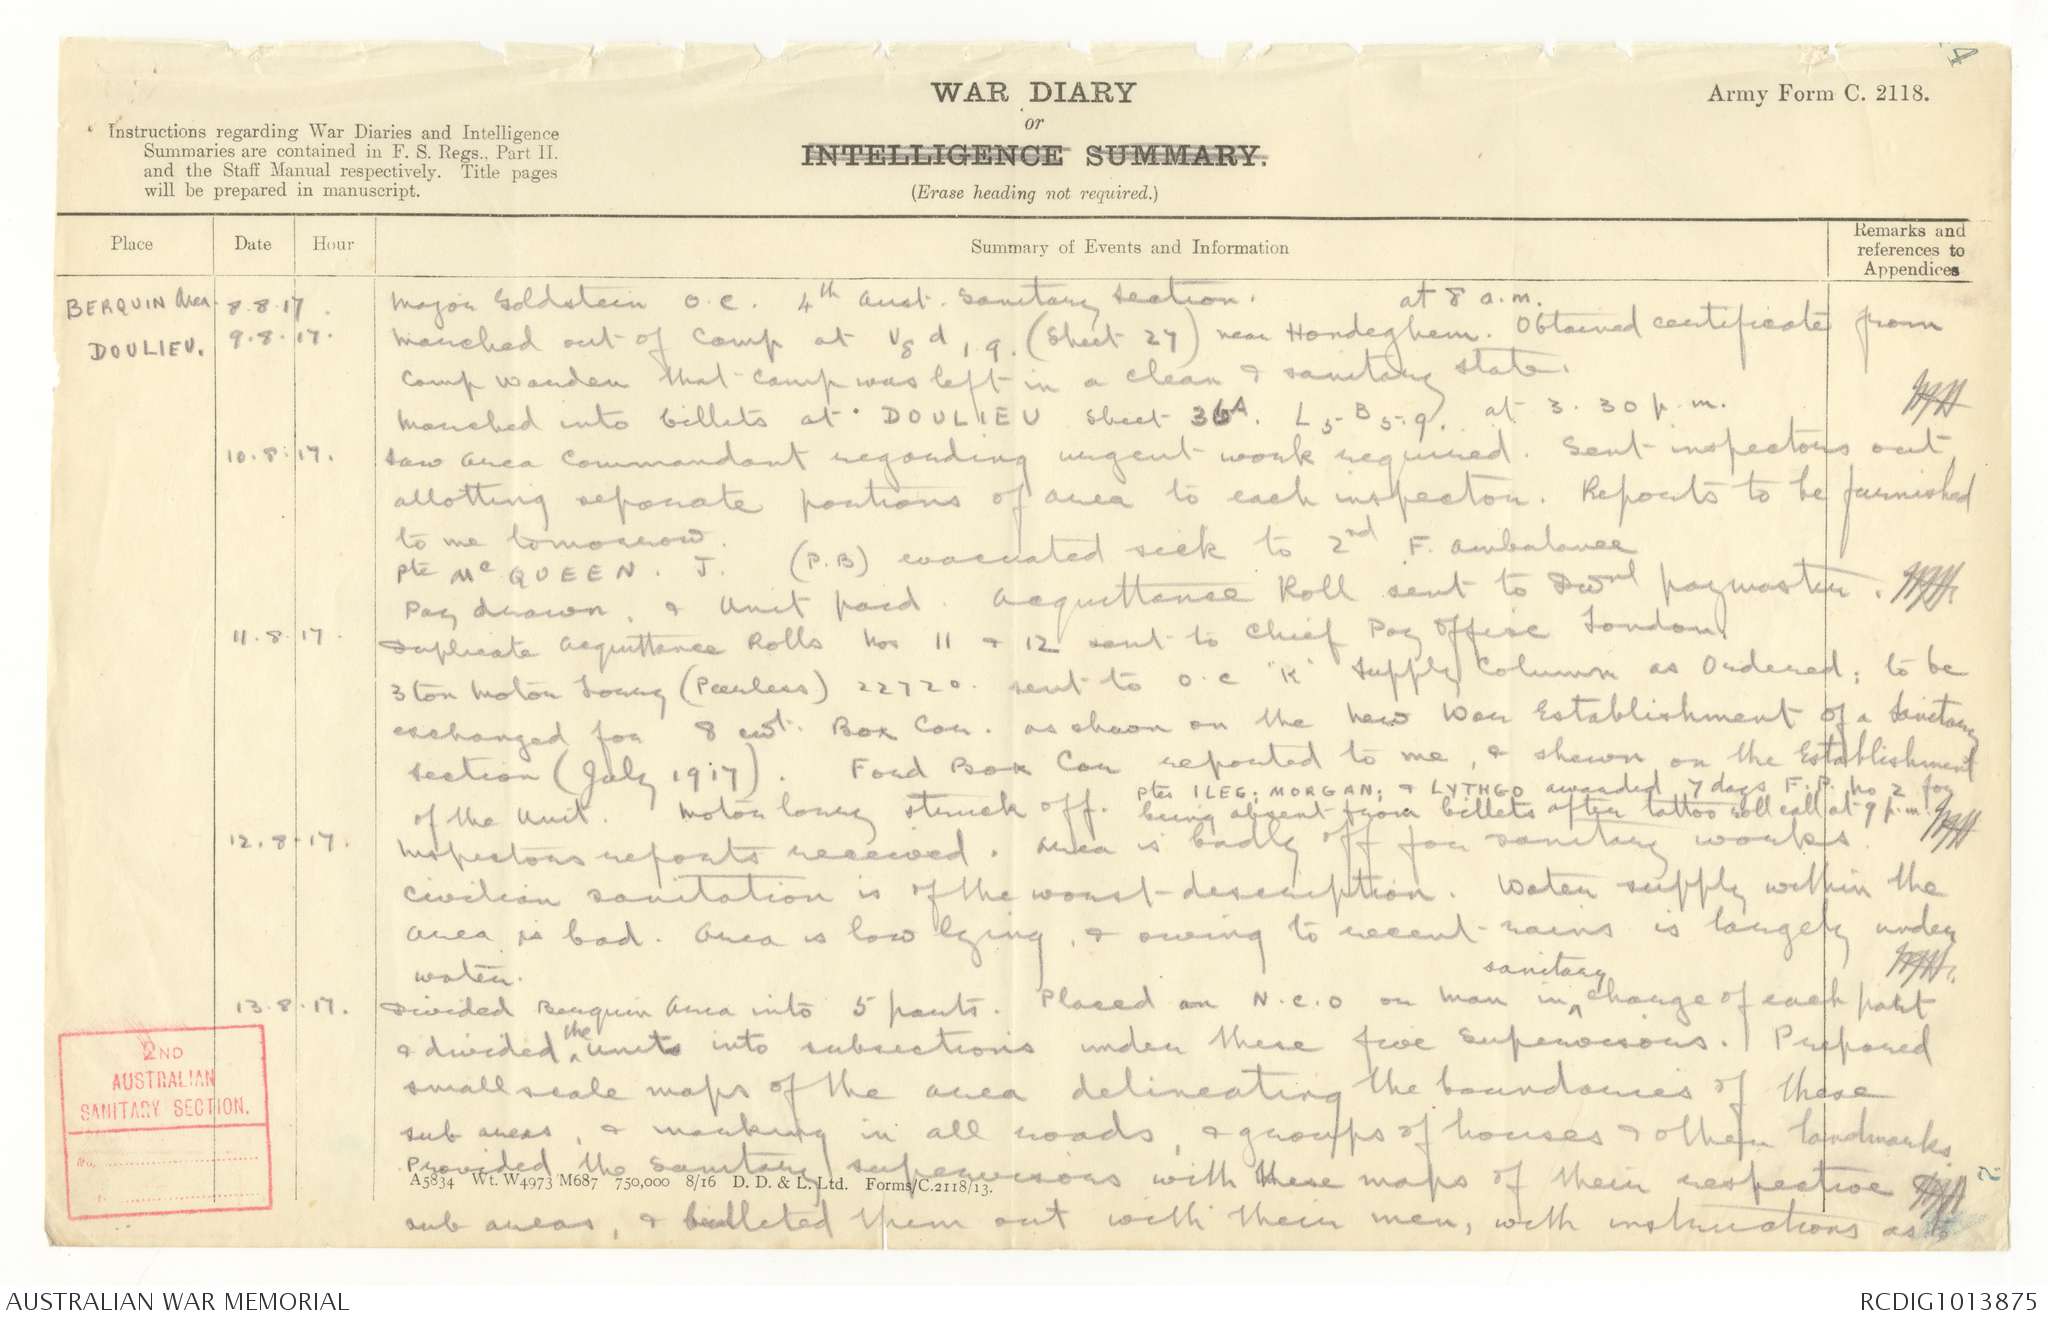 4
WAR DIARY
or
INTELLIGENCE SUMMARY.
(Erase heading not required.)
Army Form C. 2118.
Instructions regarding War Diaries and Intelligence
Summaries are contained in F. S. Regs., Part II.
and the Staff Manual respectively. Title pages
will be prepared in manuscript.
Place
Date
Hour
Summary of Events and Information
Remarks and
references to
Appendices
BERQUIN Area. 8.8.17. Major Goldstein O.C. 4th Aust. Sanitary Section.
DOULIEU. 9.8.17. Marched out of Camp at V8 d 1.9. (Sheet 27) near Hondeghem. at 8 a.m. Obtained certificate from
Camp Warden that camp was left in a clean & sanitary state.
Marched into billets at DOULIEU Sheet 36A. L5 B 5.9. at 3.30 p.m.
10.8.17. Saw Area Commandant regarding urgent work required. Sent inspectors out
allotting separate portions of area to each inspector. Reports to be furnished
to me tomorrow.
Pte McQUEEN. J. (P.B) evacuated sick to 2nd F. Ambulance
Pay drawn, & Unit paid. Acquittance Roll sent to Divnl paymaster.
11.8.17. Duplicate Acquittance Rolls Nos 11 & 12 sent to Chief Pay Office London.
3 ton Motor Lorry (Peerless) 22720. sent to O.C "K" Supply Column as Ordered; to be
exchanged for 8 cwt. Box Car. as shown on the New War Establishment of a Sanitary
Section (July 1917). Ford Box Car reported to me, & shewn on the Establishment
of the Unit. Motor lorry struck off. Ptes ILEG; MORGAN; & LYTHGO awarded 7 days F.P. No 2 for
being absent from billets after tattoo roll call at 9 p.m.
12.8.17. Inspectors reports received. Area is badly off for sanitary works.
Civilian sanitation is of the worst description. Water supply within the
area is bad. Area is low lying, & owing to recent rains is largely under
water.
13.8.17. Divided Berquin Area into 5 parts. Placed an N.C.O or man in sanitary charge of each part
& divided the units into subsections under these five Supervisors. Prepared
small scale maps of the area delineating the boundaries of these
sub areas, & marking in all roads, & groups of houses & other landmarks.
Provided the Sanitary supervisors with these maps of their respective
sub areas, & billeted them out with their men, with instructions as to
2ND
AUSTRALIAN
SANITARY SECTION.
No.
A5834 Wt. W4973/M687 750,000 8/16 D. D. & L. Ltd. Forms/C.2118/13.
AUSTRALIAN WAR MEMORIAL
RCDIG1013875